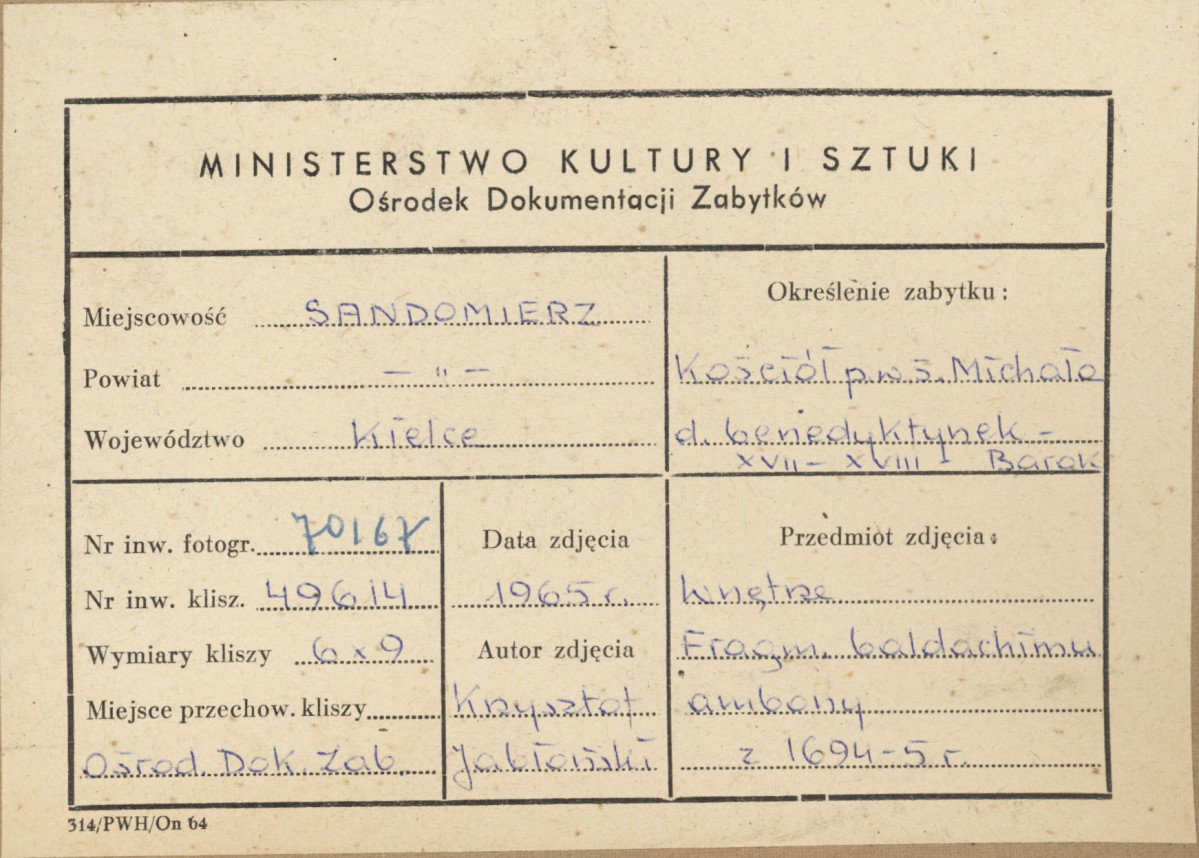 MINISTERSTWO KULTURY I SZTUKI
Ośrodek Dokumentacji Zabytków
Miejscowość SANDOMIERZ
Powiat — " —
Województwo Kielce
Określenie zabytku:
Kościół p.w ś. Michała
d. benedyktynek -
XVII - XVIII - Barok
Nr inw. fotogr. 70167
Nr inw. klisz. 49614
Wymiary kliszy 6 x 9
Miejsce przechow. kliszy
Ośrod. Dok. Zab.
Data zdjęcia
1965 r.
Autor zdjęcia
Krzysztof
Jabłoński
Przedmiot zdjęcia:
Wnętrze
Fragm. baldachimu
ambony
z 1694-5 r.
314/PWH/On 64